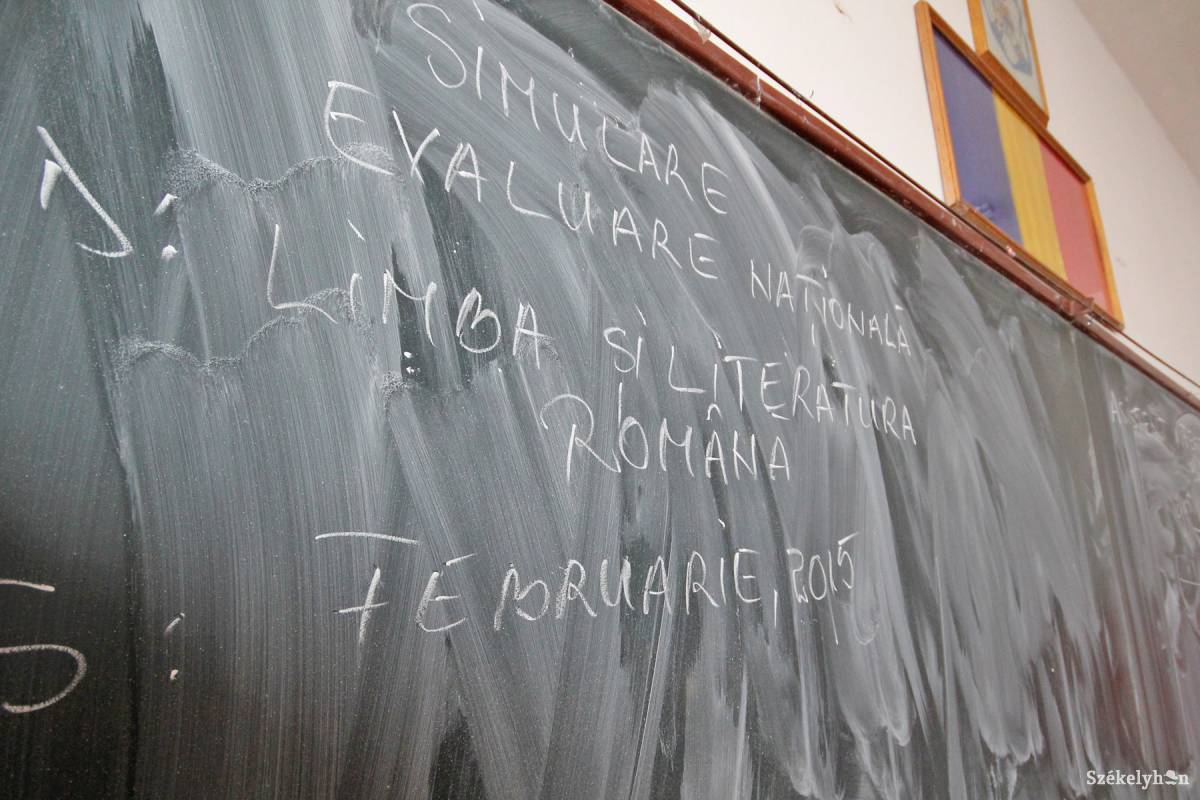 SIMULARE
EVALUARE NAȚIONALĂ
LIMBA ȘI LITERATURA
ROMÂNĂ
FEBRUARIE, 2015
Székelyhon